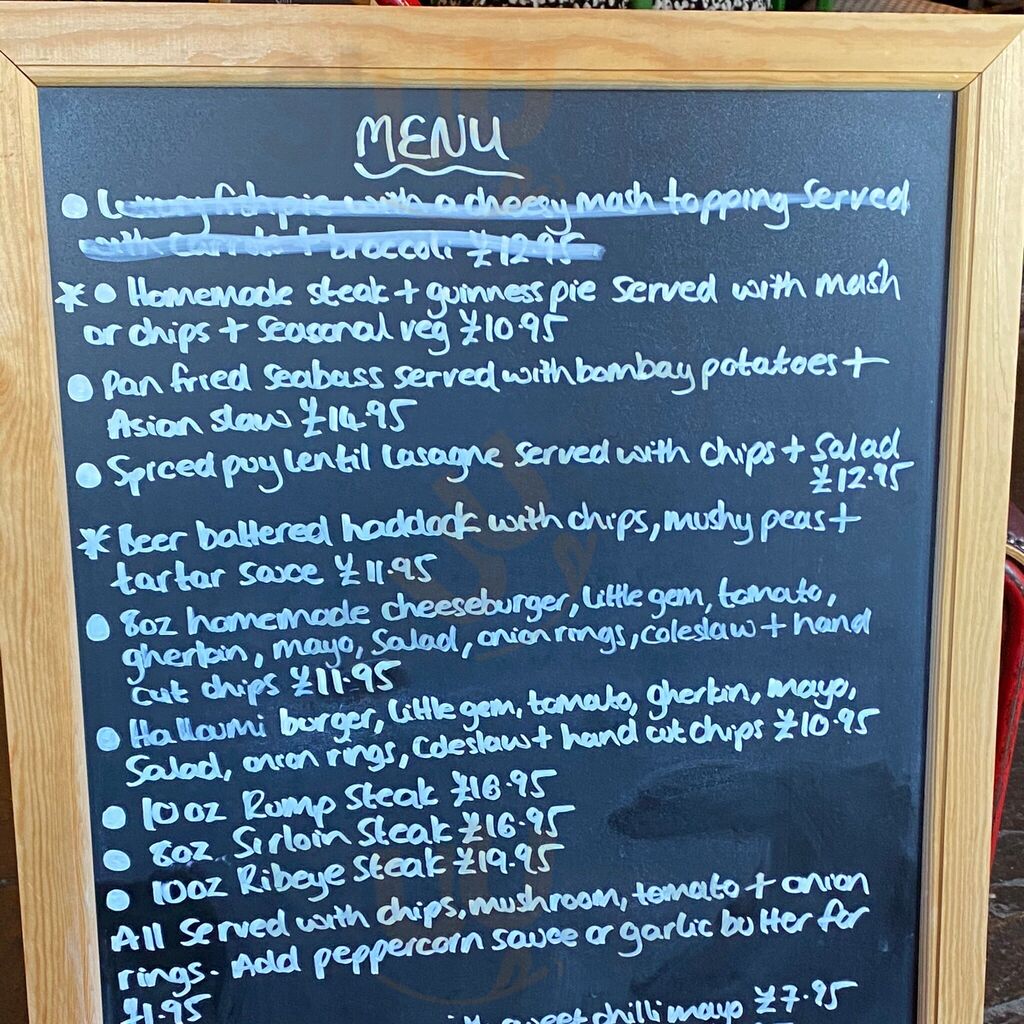 MENU
Luxury fish pie with a cheesy mash topping Served
with carrots + broccoli £12.95
* Homemade steak + guinness pie served with mash
or chips + seasonal veg £10.95
Pan fried seabass served with bombay potatoes +
Asian slaw £14.95
Spiced puy lentil lasagne served with chips + Salad
£12.95
* Beer battered haddock with chips, mushy peas +
tartar sauce £11.95
8oz homemade cheeseburger, little gem, tomato,
gherkin, mayo, salad, onion rings, coleslaw + hand
cut chips £11.95
Halloumi burger, little gem, tomato, gherkin, mayo,
Salad, onion rings, coleslaw + hand cut chips £10.95
10oz Rump Steak £16.95
8oz Sirloin Steak £16.95
10oz Ribeye Steak £19.95
All Served with chips, mushroom, tomato + onion
rings. Add peppercorn sauce or garlic butter for
£1.95
sweet chilli mayo £7.95